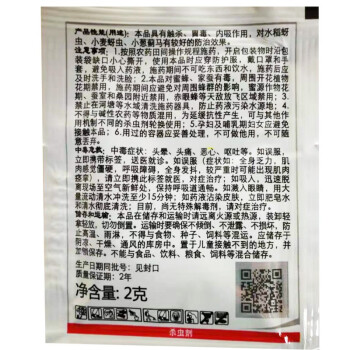 产品性能(用途):本品具有触杀、胃毒、内吸作用,对水稻蚜
虫、小麦蚜虫、小葱蓟马有较好的防治效果。
注意事项:1.按照农药田间操作规程施药,开启包装物时沿包
装袋缺口小心撕开,使用本品时应穿防护服、戴口罩和手
套,避免吸入药液,施药期间不可吃东西和饮水,施药后应
及时洗手和洗脸;2.本品对蜜蜂、家蚕有毒,周围开花植物
花期禁用,施药期间应密切注意对周围蜂群的影响,蜜源作物花
期、蚕室和桑园附近禁用,赤眼蜂等天敌放飞区域禁用;3.
禁止在河塘等水域清洗施药器具,防止药液污染水源地;4.
不得与碱性农药等物质混用,为延缓抗性产生,可与其他作用
机制不同的杀虫剂轮换使用;5.孕妇及哺乳期妇女应避免
接触本品;6.用过的容器应妥善处理,不可做他用,不可随
意丢弃。
中毒急救:中毒症状:头晕、头痛、恶心、呕吐等。如误服,
立即携带标签,送医就诊。如误服(症状如:全身乏力,肌
肉感觉僵硬,呼吸障碍,全身发抖,较严重时可能出现肌肉
痉挛),请立即携此标签就医,对症治疗;如吸入:迅速脱
离现场至空气新鲜处,保持呼吸道通畅。如溅入眼睛,用大
量流动清水冲洗至少15分钟;如药液沾染皮肤,立即用肥皂水
和清水彻底清洗;目前,尚无特殊解毒剂,请对症治疗。
储存和运输:本品在储存和运输时请远离火源或热源,装卸轻
拿轻放,切勿倒置。运输时要确保不倾倒、不泄露、不损坏、防
止高温、雨淋,不得与食物、种子、饲料等混运。应储存于
阴凉、干燥、通风的库房中。置于儿童接触不到的地方,并
加锁保存。不能与食品、饮料、粮食、饲料等混合储存。
生产日期同批号:见封口
质量保证期:2年
净含量:2克
杀虫剂